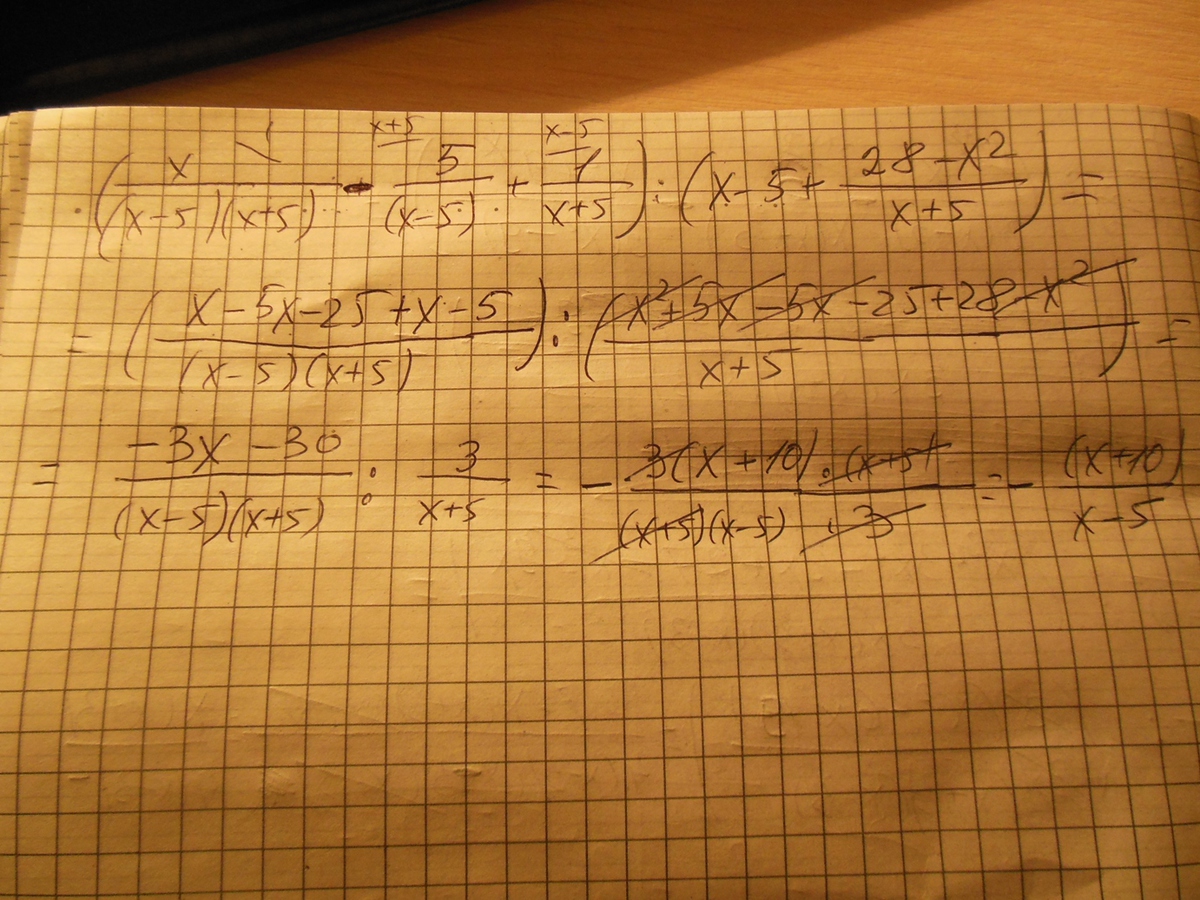 (x/((x-5)(x+5)) - 5/(x-5) + 1/(x+5)) : (x-5+(28-x²)/(x+5)) =
= ((x-5x-25+x-5)/((x-5)(x+5))) : ((x²+5x-5x-25+28-x²)/(x+5)) =
= (-3x-30)/((x-5)(x+5)) : 3/(x+5) = - (3(x+10)·(x+5))/((x+5)(x-5)·3) = - (x+10)/(x-5)